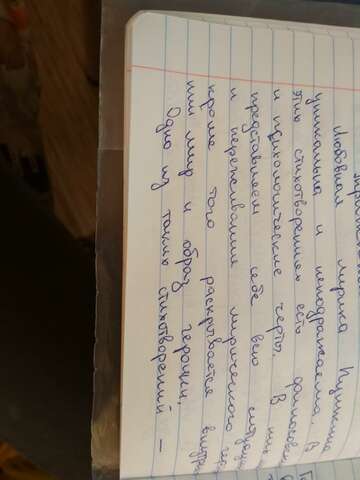 Любовная лирика Пушкина
уникальна и неподражаема. В
этих стихотворениях есть философские
и психологические черты. В них
представляем себе всю ситуацию
и переживания лирического героя
кроме того раскрывается внутрен
ний мир и образ героини.
Одно из таких стихотворений –